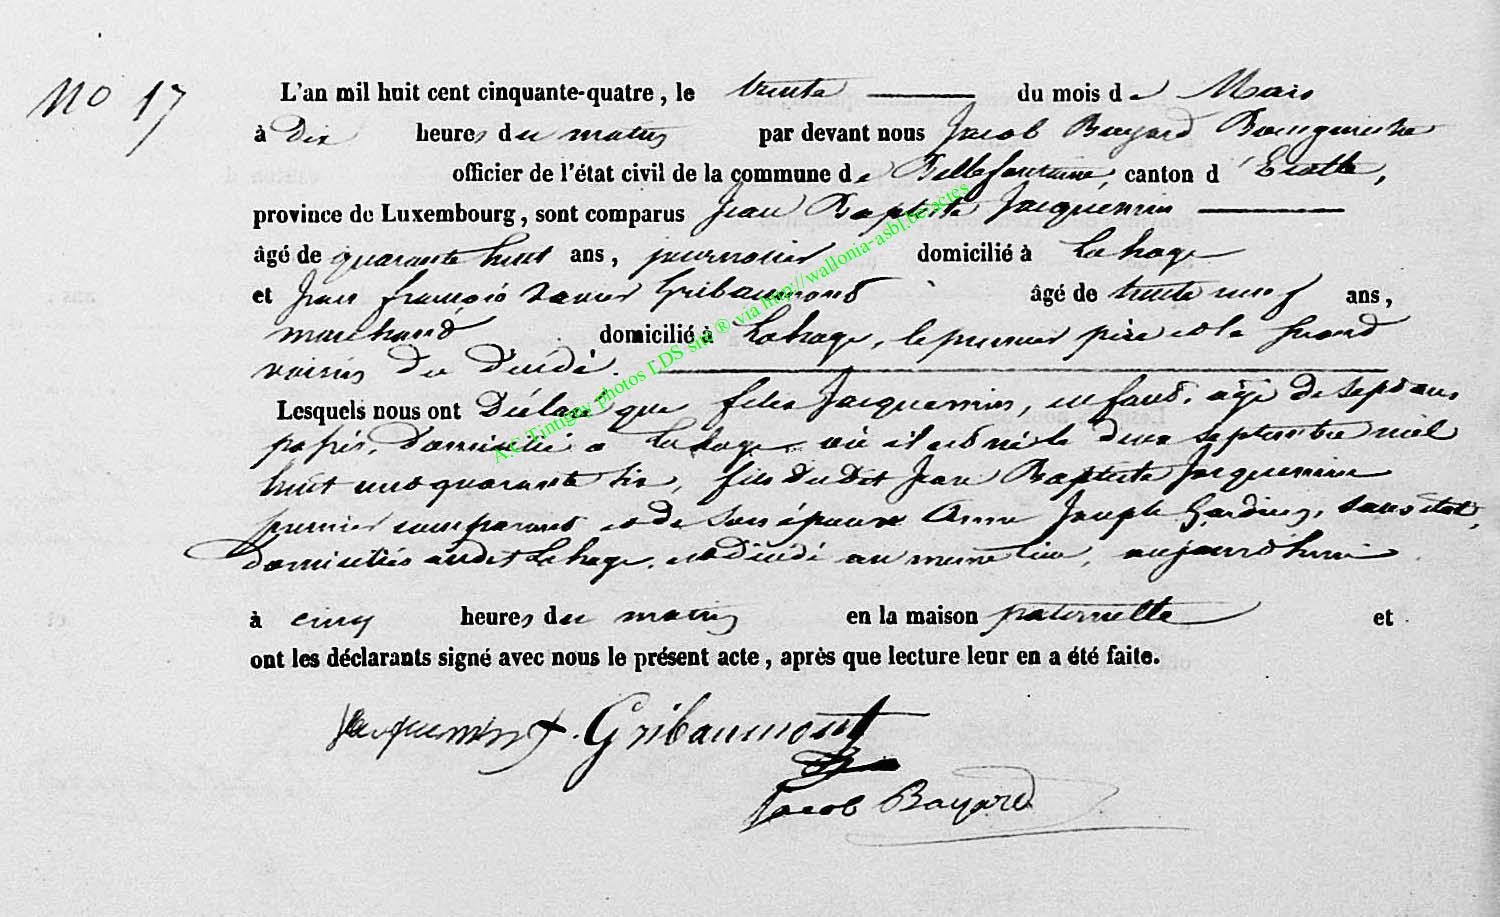 No 17
L'an mil huit cent cinquante-quatre, le trente du mois de Mars
à Dix heures du matin par devant nous Jacob Bayard Bourgmestre
officier de l'état civil de la commune de Bellefontaine, canton d'Etalle,
province de Luxembourg, sont comparus Jean Baptiste Jacquemin
âgé de quarante huit ans, journalier domicilié à Lahage
et Jean françois xavier Gribaumont âgé de trente neuf ans,
marchand domicilié à Lahage, le premier père et le second
voisin du Décédé.
Lesquels nous ont Déclaré que felix Jacquemin, enfant, agé de sept ans
passés, Domicilié a Lahage où il est né le deux septembre mil
huit cent quarante six, fils du dit Jean Baptiste Jacquemin
premier comparant et de son épouse Anne Joseph, sans état,
Domiciliés audit Lahage, est décédé au meme lieu, aujourd'hui
à cinq heures du matin en la maison paternelle et
ont les déclarants signé avec nous le présent acte, après que lecture leur en a été faite.
Jacquemin Gribaumont
Jacob Bayard
A.C Tintigny photos LDS sur ® via http://wallonia-asbl.be/actes